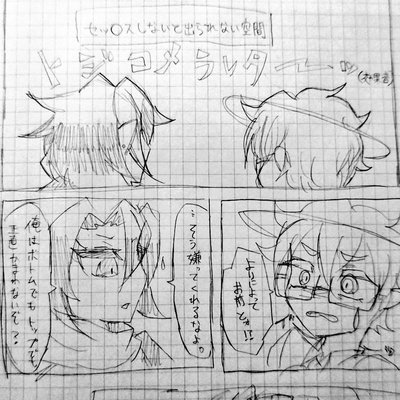 セッ〇スしないと出られない空間
トジコメラレターッ
よりによって
お前とか!?
…そう嫌ってくれるなよ。
俺はボトムでもトップでも